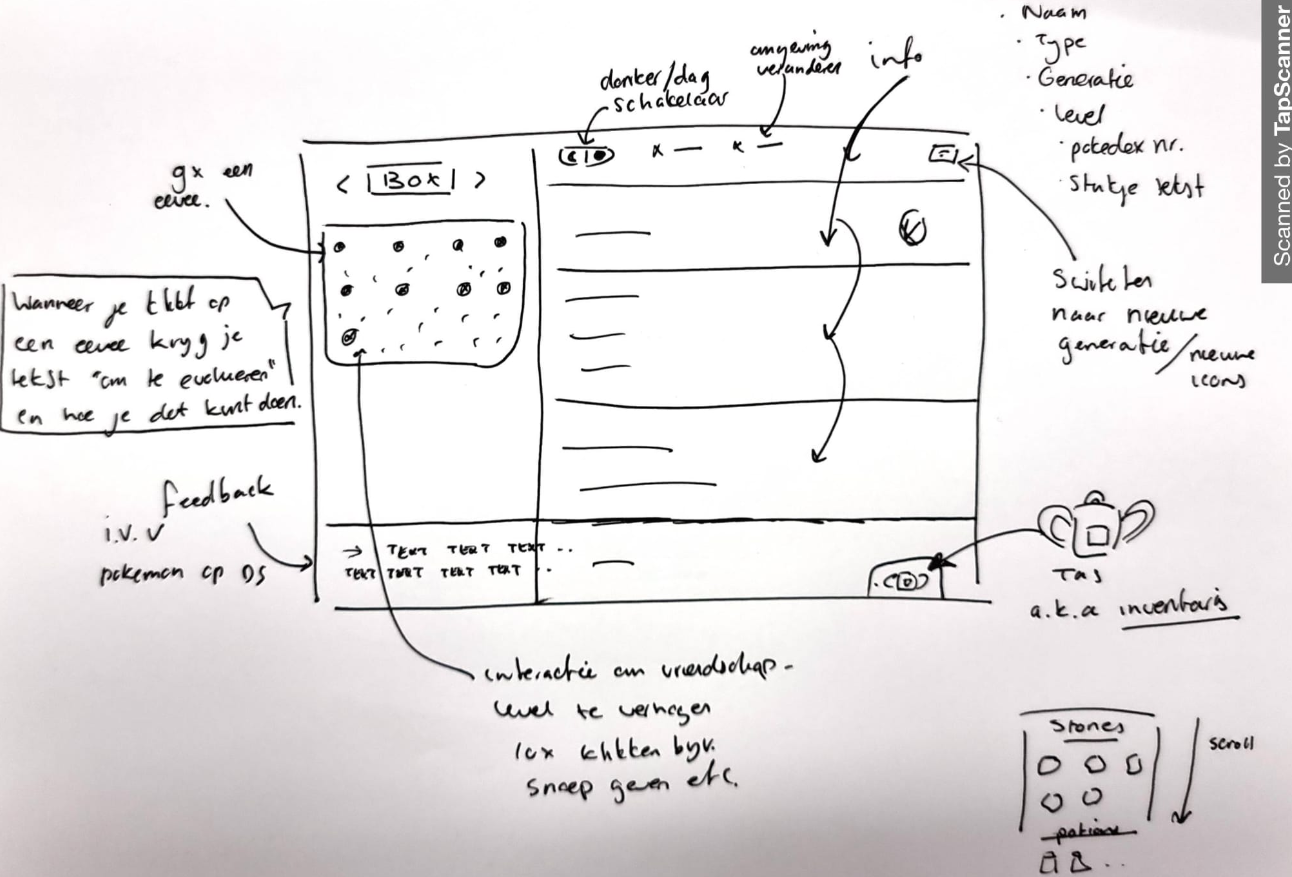 · Naam
· Type
· Generatie
· level
· pokedex nr.
· Stukje tekst
Scanned by TapScanner
donker/dag
schakelaar
omgeving
veranderen
info
9x een
eevee.
< Box >
Wanneer je klikt op
een eevee kryg je
tekst "om te evolueren"
en hoe je dat kunt doen.
Switchen
naar nieuwe
generatie/nieuwe
icons
feedback
i.v.v
pokemon op DS
→ TEXT TEXT TEXT ..
TEXT TEXT TEXT TEXT ..
Tas
a.k.a inventaris
interactie om vriendschap-
level te verhogen
10x klikken byv.
snoep geven etc.
Stones
scroll
potions